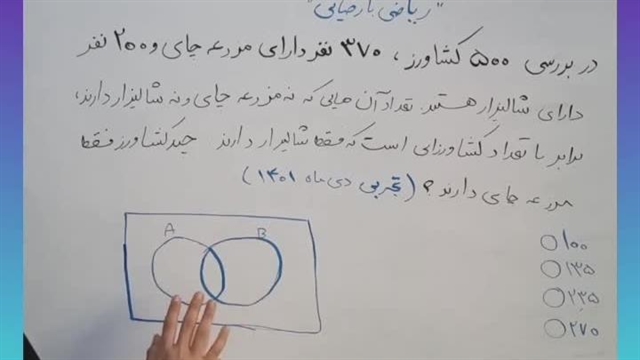 "ریاضی با رضایی"
در بررسی ۵۰۰ کشاورز، ۳۷۰ نفر دارای مزرعه چای و ۲۰۰ نفر
دارای شالیزار هستند. تعداد آن هایی که نه مزرعه چای و نه شالیزار دارند،
برابر با تعداد کشاورزانی است که فقط شالیزار دارند چند کشاورز فقط
مزرعه چای دارند؟ (تجربی دی ماه ۱۴۰۱)
A
B
۱۰۰
۱۳۵
۲۳۵
۲۷۰